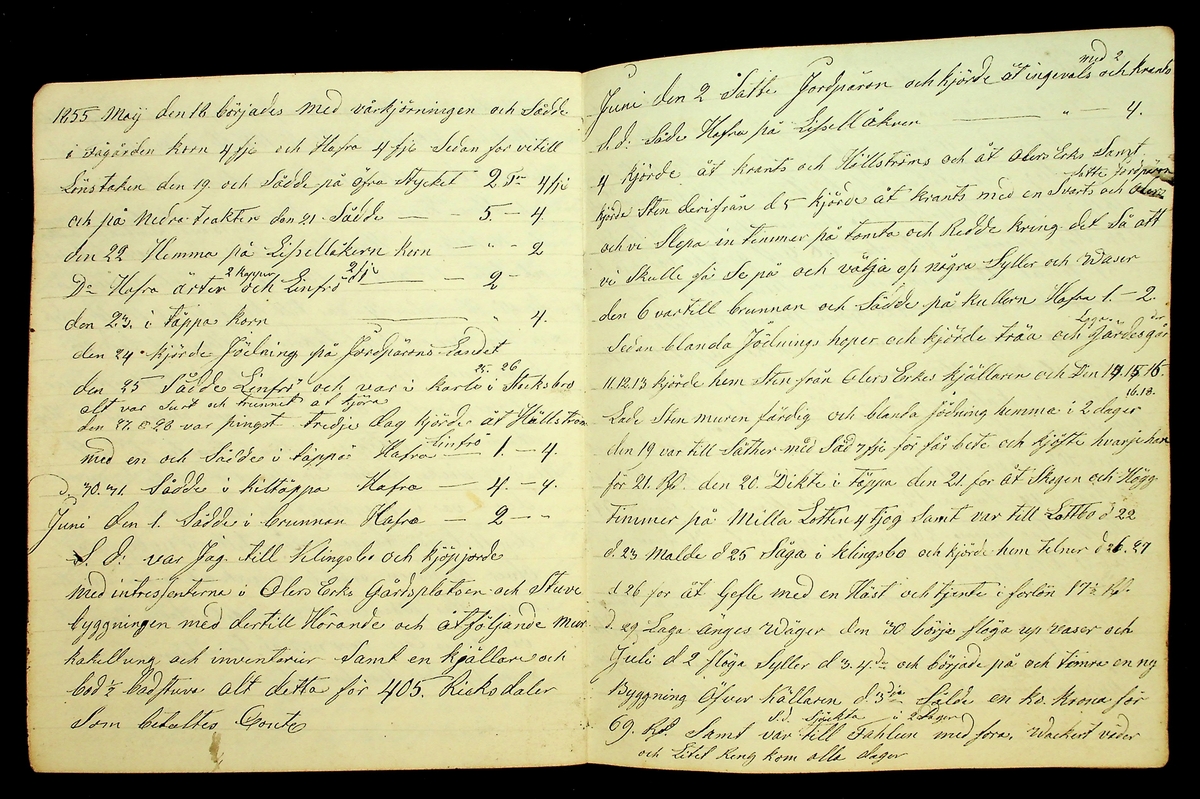 1855 Maij den 18 börjades med vårkjörningen och Sådde
i Fägården korn 4 fji och Hafra 4 fji Sedan for vi till
Lönstaken den 19 och Sådde på öfra stycket 2 Tr 4 fji
och på Nedra trakten den 21 Sådde — 5. — 4.
den 22 Hemma på Lissellåkern korn — " — 2
Do Hafra ärter 2 kappor och Linfrö 2 fji — 2 —
den 23. i täppa korn — " 4.
den 24 kjörde Jödning på Jordpärons Landet
den 25 Sådde Linfrö och var i karbo i Stocksbro 25. 26
alt var surt och trunnit at kjöra
den 27. o 28 var pingst tredje dag kjörde åt Hällström
med en och Sådde i täppo Hafra Linfrö — 1. — 4.
d. 30. 31. Sådde i kiltäppa Hafra — 4. — 4.
Juni den 1. Sådde i brunnan Hafra — 2 — "
S. d: var Jag till Klingsbo och kjöpjorde
med intressenterna i Olers Erks Gårdsplatsen och Stuve
byggningen med dertill Hörande och åtföljande Mur
kakellung och inventarier Samt en kjällare och
bod ½ badstuva alt detta för 405. Riksdaler
Som betaltes Conte
Juni den 2 Satte Jordpäron och kjörde åt ingevals med 2 och krants
S. d: Såde Hafra på Lissellåkern — " — 4.
4 kjörde åt krants och Hällströms och åt Olers Erks Samt
kjörde Sten derifrån d 5 kjörde åt krants med en Svarts och Satte Jordpäron
och vi Slepa in timmer på tomta och Redde kring det Så att
vi Skulle få Se på och välja op några Syller och Waser
den 6 var till brunnan och Sådde på kullern Hafra 1. — 2.
Sedan blanda Jödnings hoper och kjörde träa och Laga Gärdesgår
11. 12. 13 kjörde hem Sten från Olers Erkes kjällaren och Den 14 15 16.
16. 18.
Lade Sten muren färdig och blanda jödning hemma i 2 dagar
den 19 var till Säther måd Såd 7 fji för får bete och kjöfte hvarjehan
för 21. Rd. den 20 Dikte i Täppa den 21. for åt Skogen och Högg
Timmer på Milla Lotten 4 tjog Samt var till Lottbo d 22
d. 23 Malde d 25 Såga i Klingsbo och kjörde hem telner d 26. 27
d 26 for åt Gefle med en Häst och tjente i forlön 17½ Rd.
d. 29 Laga änges Wäger den 30 börja flöga up Vaser och
Juli d 2 flöga Syller d 3. 4. do och började på och timra en ny
Byggning Öfver källaren d. 5 Sålde en ko krona för
69. Rd. Samt var till Fahlun med fora, Wackert väder
S. d. Sjöckta i 2 dager
och Litet Reng kom alla dager